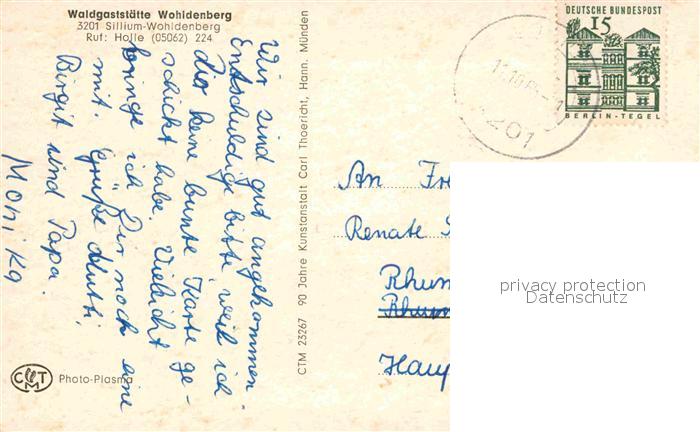 Waldgaststätte Wohldenberg
3201 Sillium-Wohldenberg
Ruf: Holle (05062) 224
Wir sind gut angekommen.
Entschuldige bitte weil ich
Dir keine bunte Karte ge-
schickt habe. Vieleicht
bringe ich Dir noch eine
mit. Grüße Mutti,
Birgit und Papa.
Monika
CTM Photo-Plasma
CTM 23267 90 Jahre Kunstanstalt Carl Thoericht, Hann. Münden
DEUTSCHE BUNDESPOST
15
BERLIN-TEGEL
An
Renate
privacy protection
Datenschutz